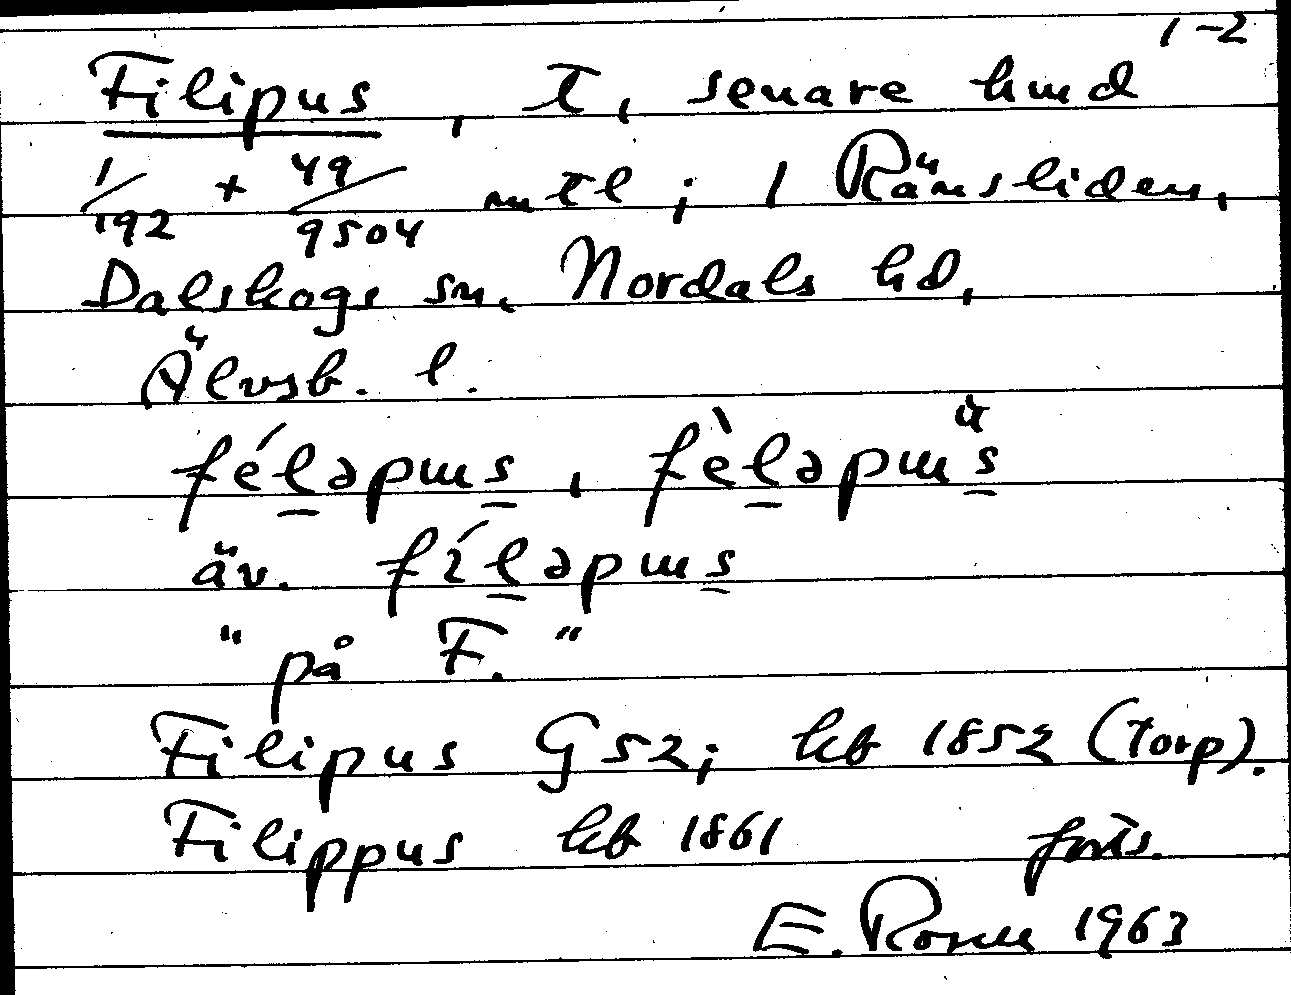 1-2
Filipus, T, senare hmd
1/192 + 49/9504 mtl; 1 Rämsliden,
Dalskogs sn, Nordals hd,
Älvsb. l.
féləpɯs, fèləpɯs̈
äv. fíləpɯs
"på F."
Filipus G52; hfb 1852 (torp).
Filippus hfb 1861 forts.
E. Rosell 1963